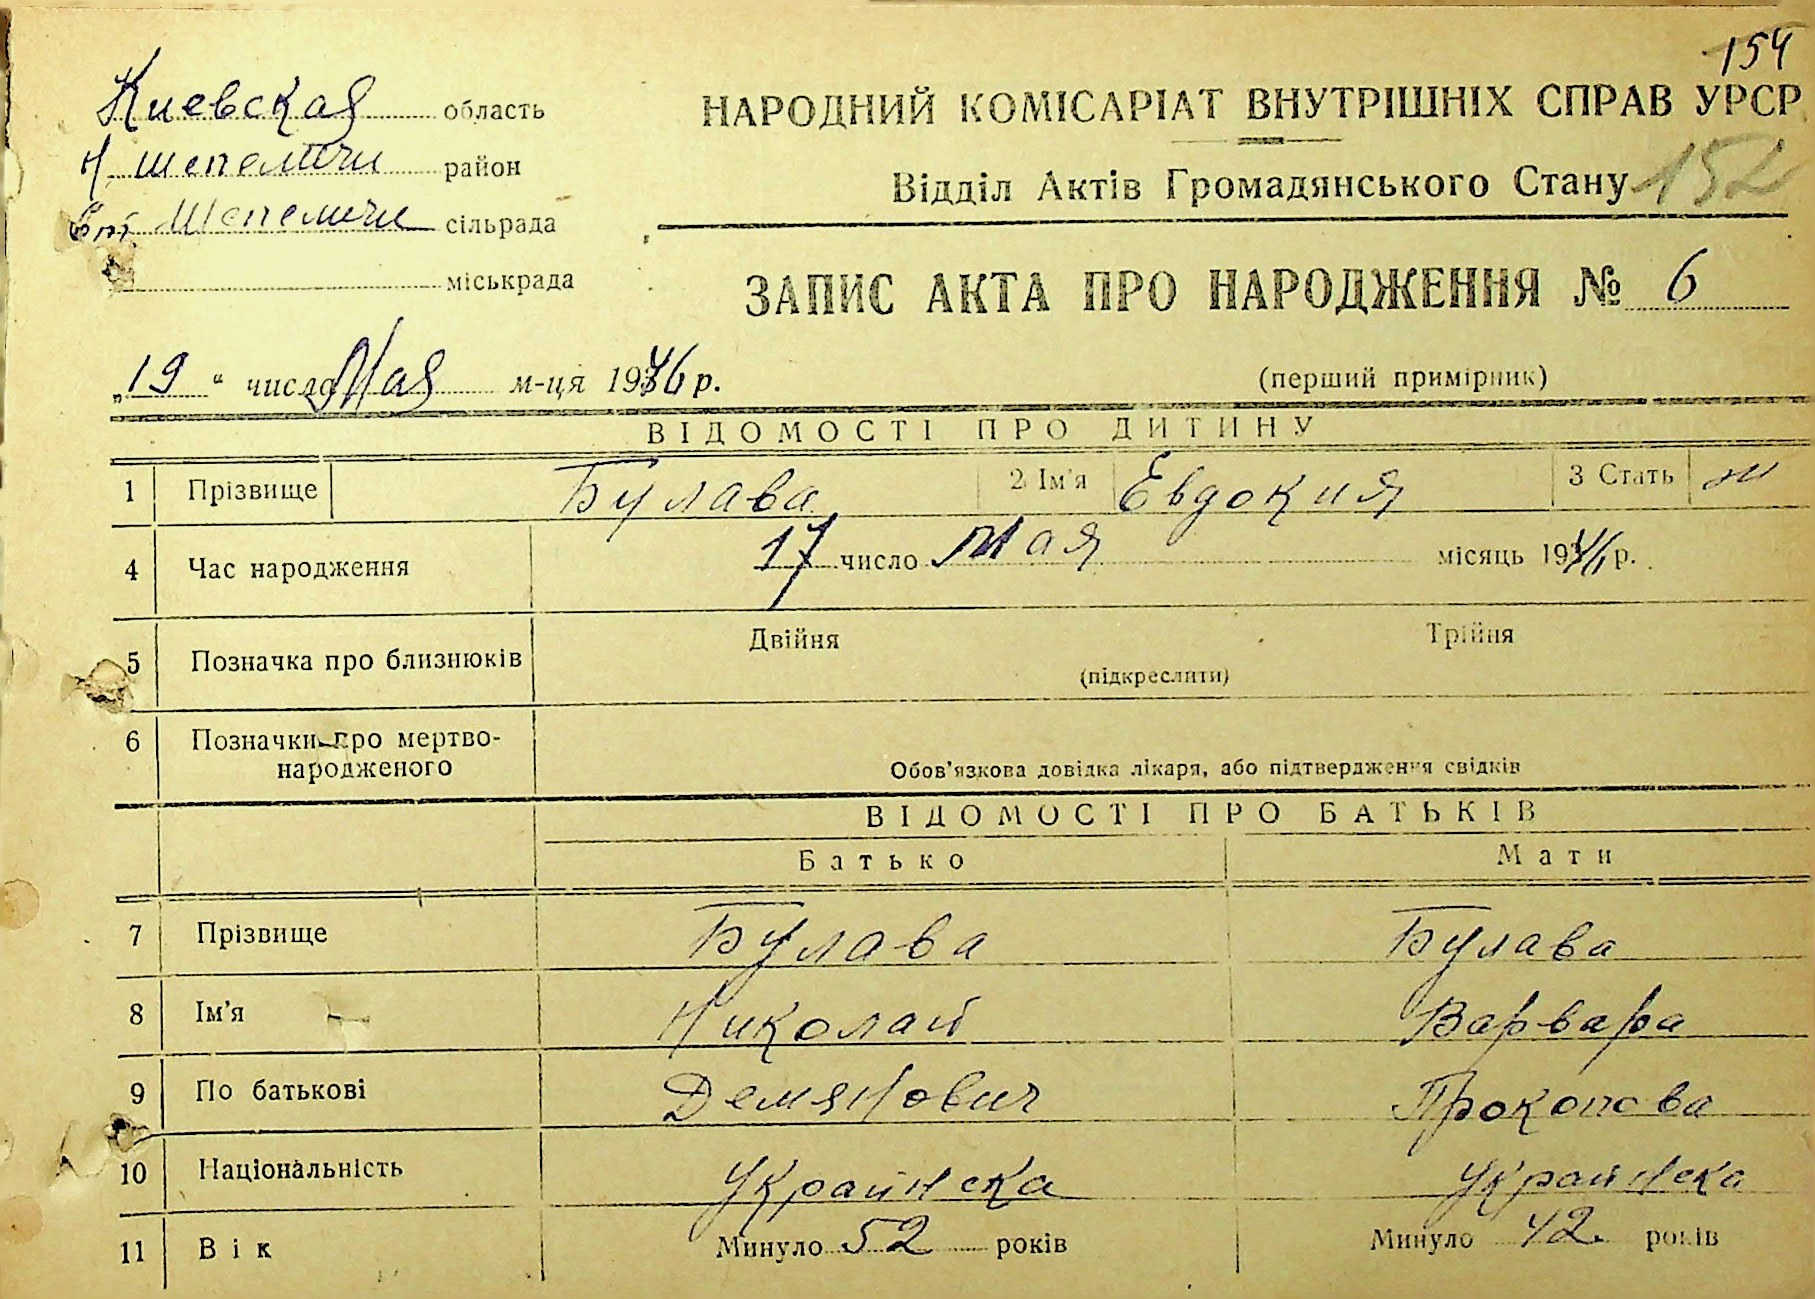 154
Киевская область
НАРОДНИЙ КОМІСАРІАТ ВНУТРІШНІХ СПРАВ УРСР
Н шепеличи район
152
Відділ Актів Громадянського Стану
Ст. Шепеличи сільрада
міськрада
ЗАПИС АКТА ПРО НАРОДЖЕННЯ № 6
„19“ число Мая м-ця 1946 р.
(перший примірник)
ВІДОМОСТІ ПРО ДИТИНУ
1 Прізвище Булава 2 Ім'я Евдокия 3 Стать ж
4 Час народження 17 число мая місяць 1946 р.
5 Позначка про близнюків Двійня Трійня
(підкреслити)
6 Позначки про мертво-
народженого Обов'язкова довідка лікаря, або підтвердження свідків
ВІДОМОСТІ ПРО БАТЬКІВ
Батько Мати
7 Прізвище Булава Булава
8 Ім'я Николай Варвара
9 По батькові Демянович Прокопова
10 Національність Украйнска Украйнска
11 Вік Минуло 52 років Минуло 42 років